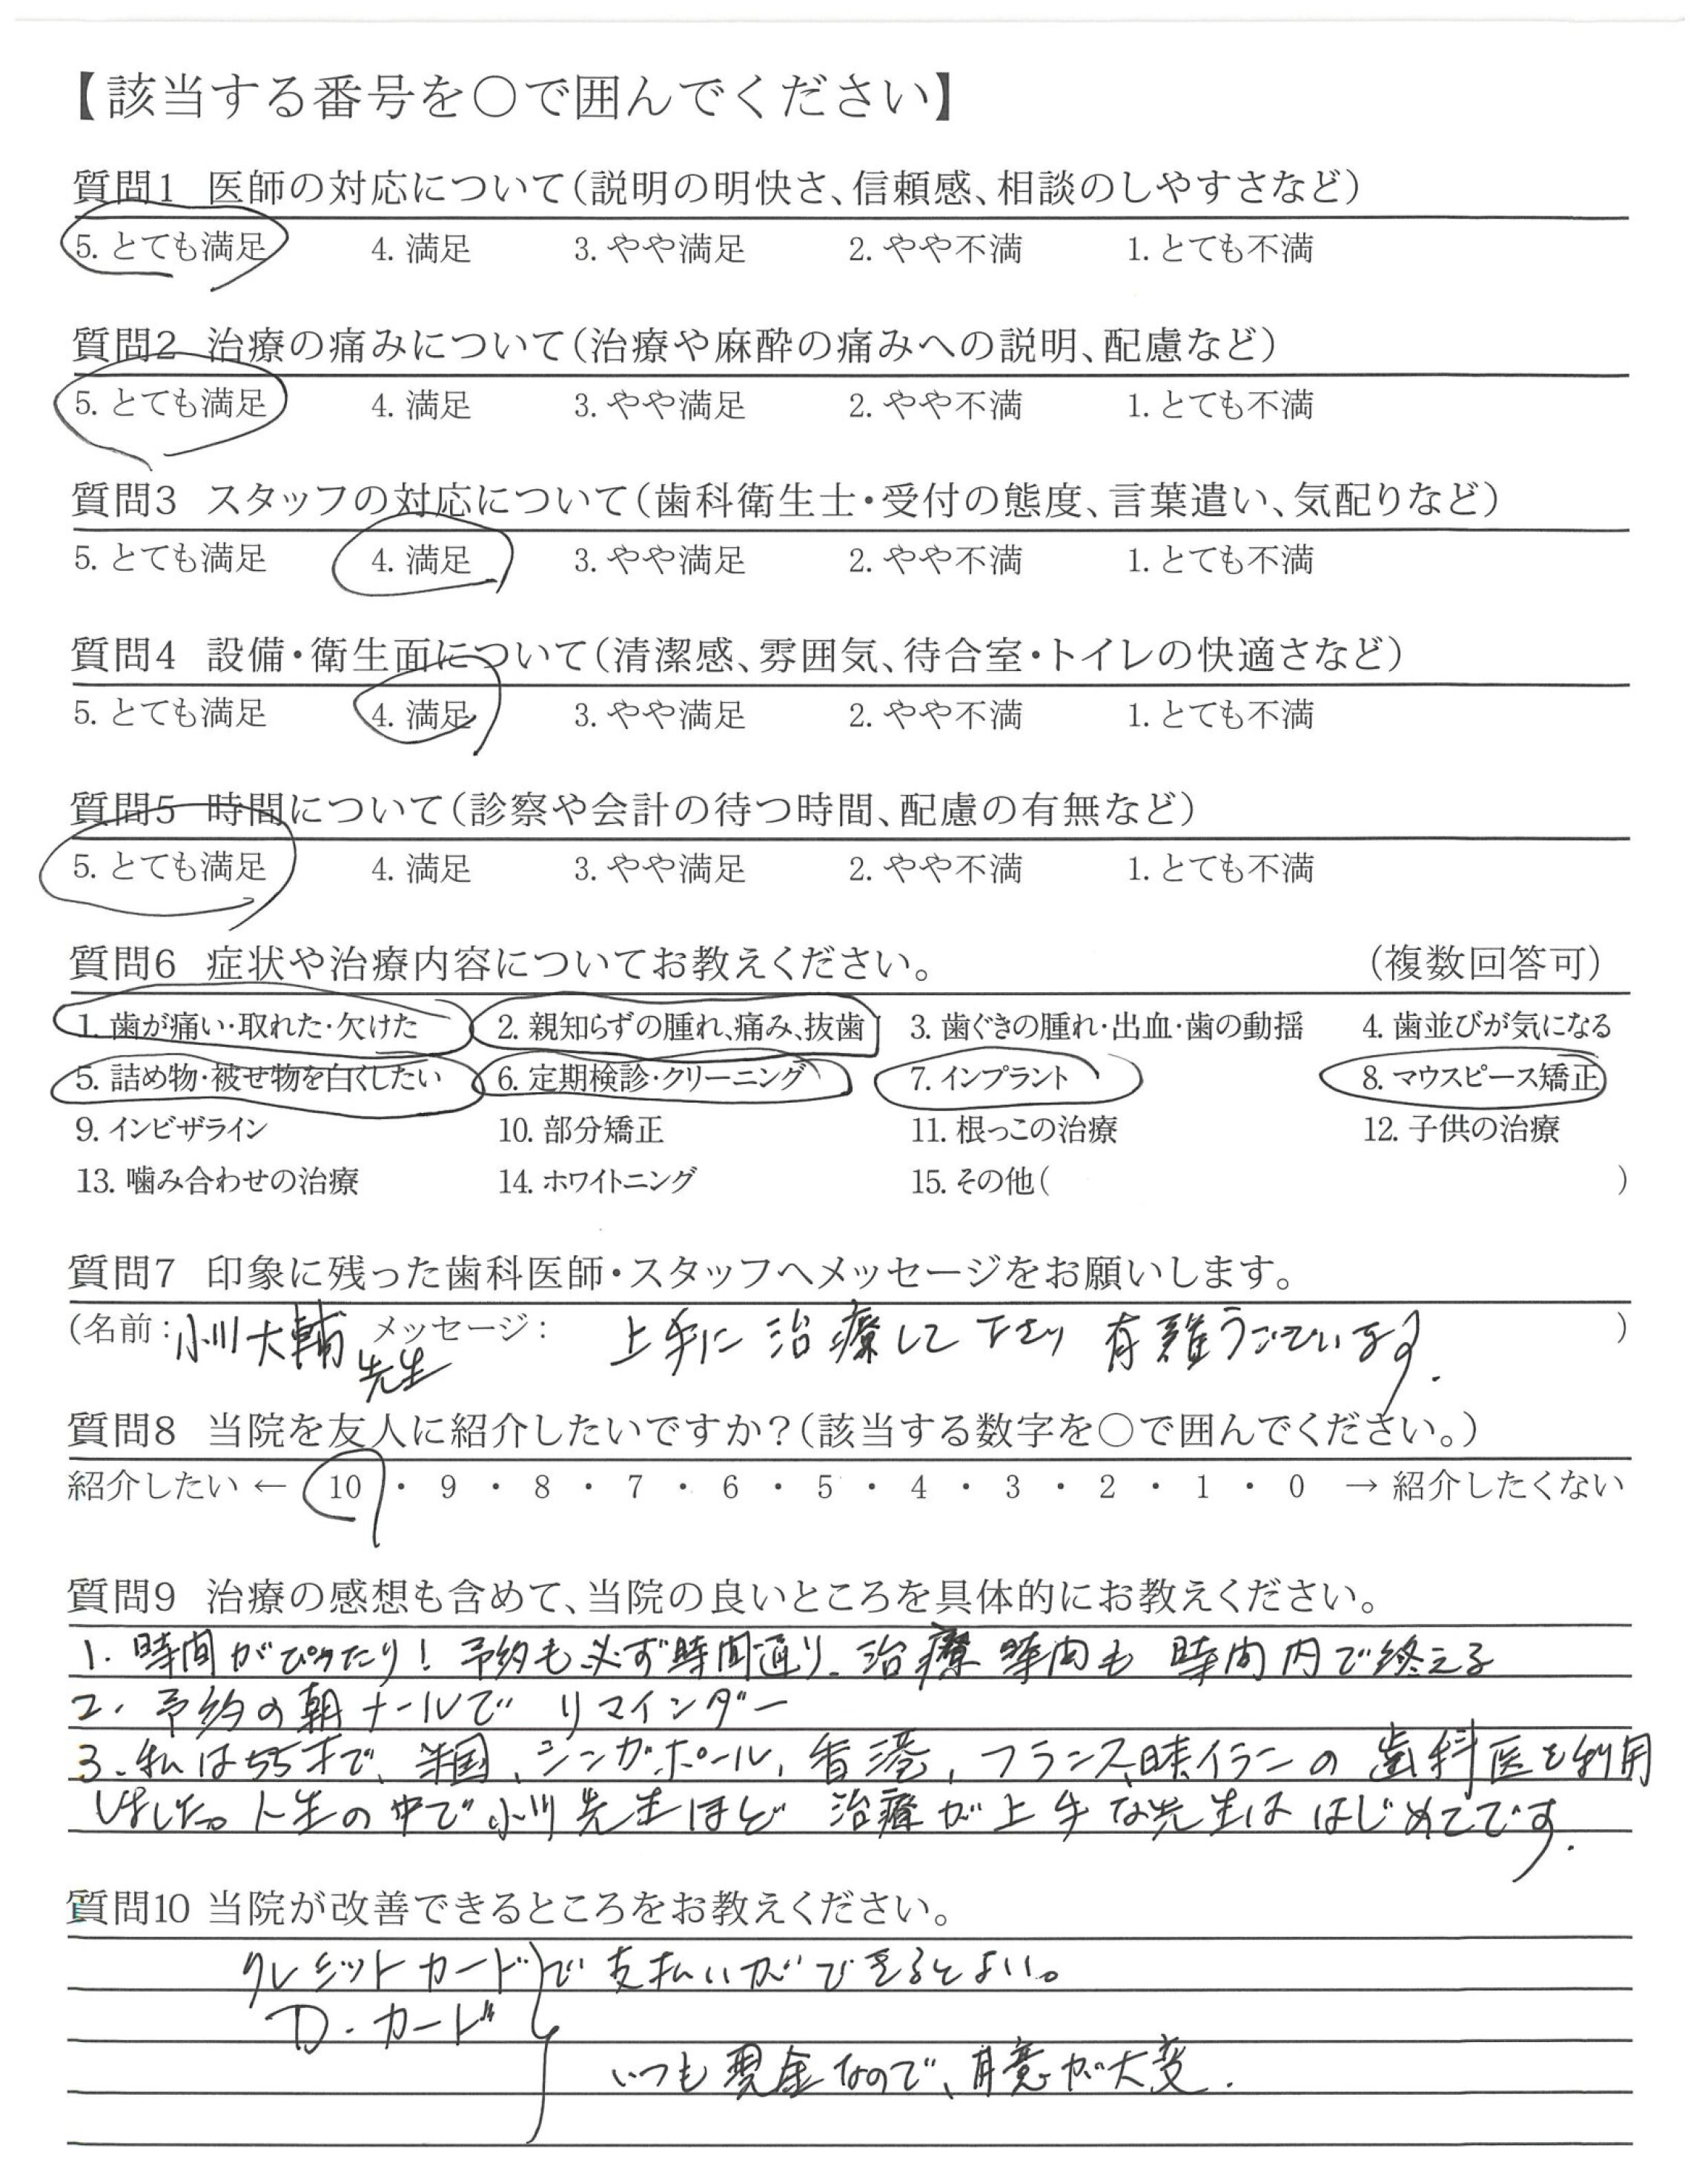 【該当する番号を○で囲んでください】
質問1 医師の対応について(説明の明快さ、信頼感、相談のしやすさなど)
5. とても満足 4. 満足 3. やや満足 2. やや不満 1. とても不満
質問2 治療の痛みについて(治療や麻酔の痛みへの説明、配慮など)
5. とても満足 4. 満足 3. やや満足 2. やや不満 1. とても不満
質問3 スタッフの対応について(歯科衛生士・受付の態度、言葉遣い、気配りなど)
5. とても満足 4. 満足 3. やや満足 2. やや不満 1. とても不満
質問4 設備・衛生面について(清潔感、雰囲気、待合室・トイレの快適さなど)
5. とても満足 4. 満足 3. やや満足 2. やや不満 1. とても不満
質問5 時間について(診察や会計の待つ時間、配慮の有無など)
5. とても満足 4. 満足 3. やや満足 2. やや不満 1. とても不満
質問6 症状や治療内容についてお教えください。 (複数回答可)
1. 歯が痛い・取れた・欠けた 2. 親知らずの腫れ、痛み、抜歯 3. 歯ぐきの腫れ・出血・歯の動揺 4. 歯並びが気になる
5. 詰め物・被せ物を白くしたい 6. 定期検診・クリーニング 7. インプラント 8. マウスピース矯正
9. インビザライン 10. 部分矯正 11. 根っこの治療 12. 子供の治療
13. 噛み合わせの治療 14. ホワイトニング 15. その他( )
質問7 印象に残った歯科医師・スタッフへメッセージをお願いします。
(名前:小川大輔先生 メッセージ: 上手に治療して下さり 有難うございます. )
質問8 当院を友人に紹介したいですか?(該当する数字を○で囲んでください。)
紹介したい ← 10 ・ 9 ・ 8 ・ 7 ・ 6 ・ 5 ・ 4 ・ 3 ・ 2 ・ 1 ・ 0 → 紹介したくない
質問9 治療の感想も含めて、当院の良いところを具体的にお教えください。
1. 時間がぴったり! 予約も必ず時間通り. 治療時間も 時間内で終える
2. 予約の朝メールで リマインダー
3. 私は55才で、米国、シンガポール、香港、フランス、イランの歯科医を利用
しました。人生の中で小川先生ほど 治療が上手な先生は はじめてです.
質問10 当院が改善できるところをお教えください。
クレジットカード で支払いができるとよい。
D. カード
いつも現金なので、用意が大変.